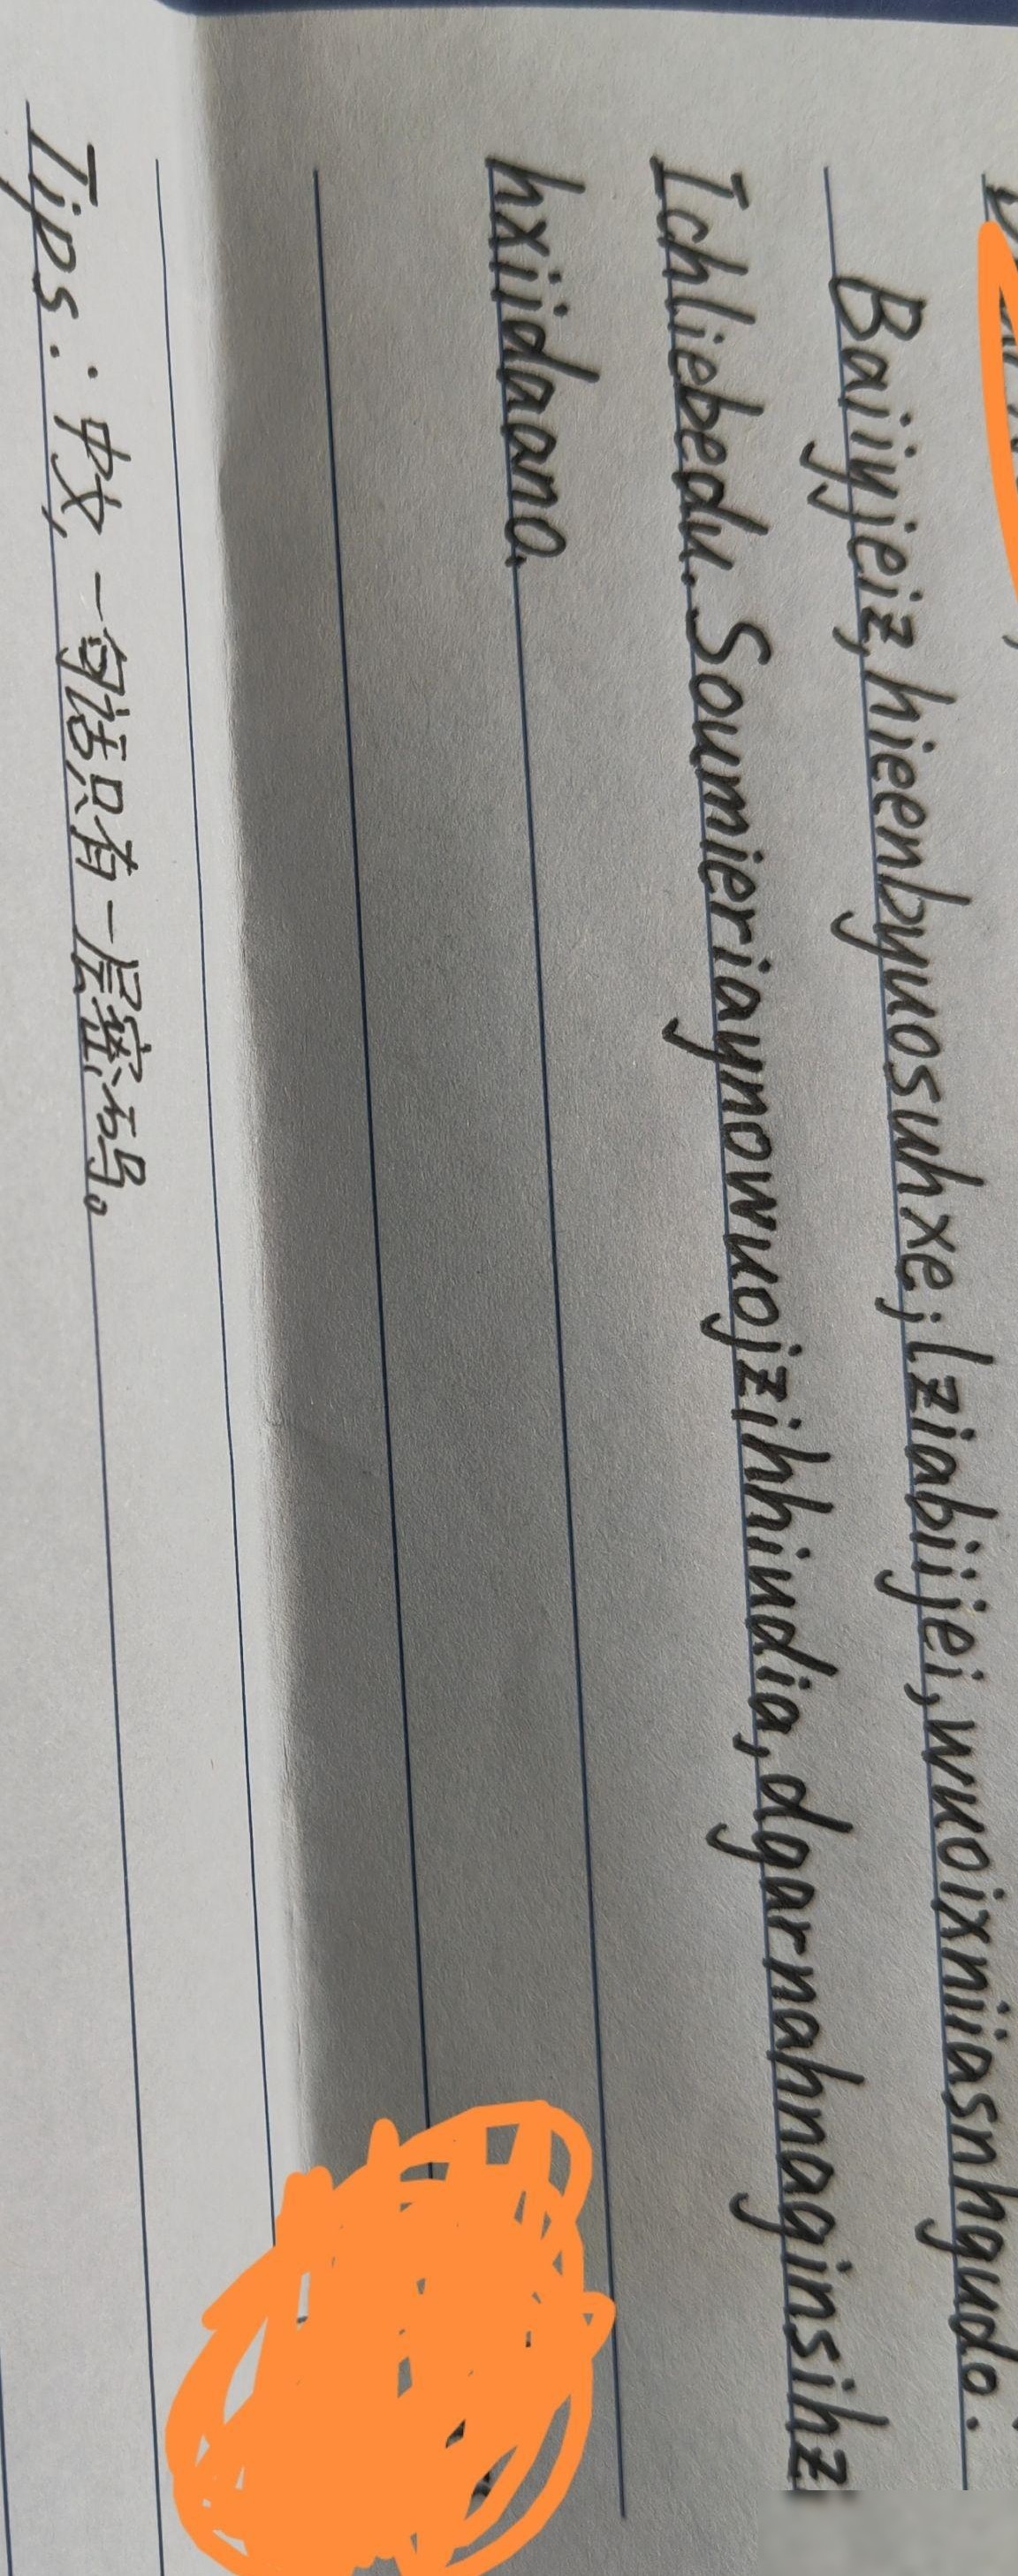 Baiiyjeiz, hieenbyuosuhxe; lziabiijei, wuoixniiasnhgudo.
Ichliebedu. Soumieriaynowuojzihhiudia, dgarnahnaginsihz
hxiidaano.
Tips: 中文,一句话只有一层密码。